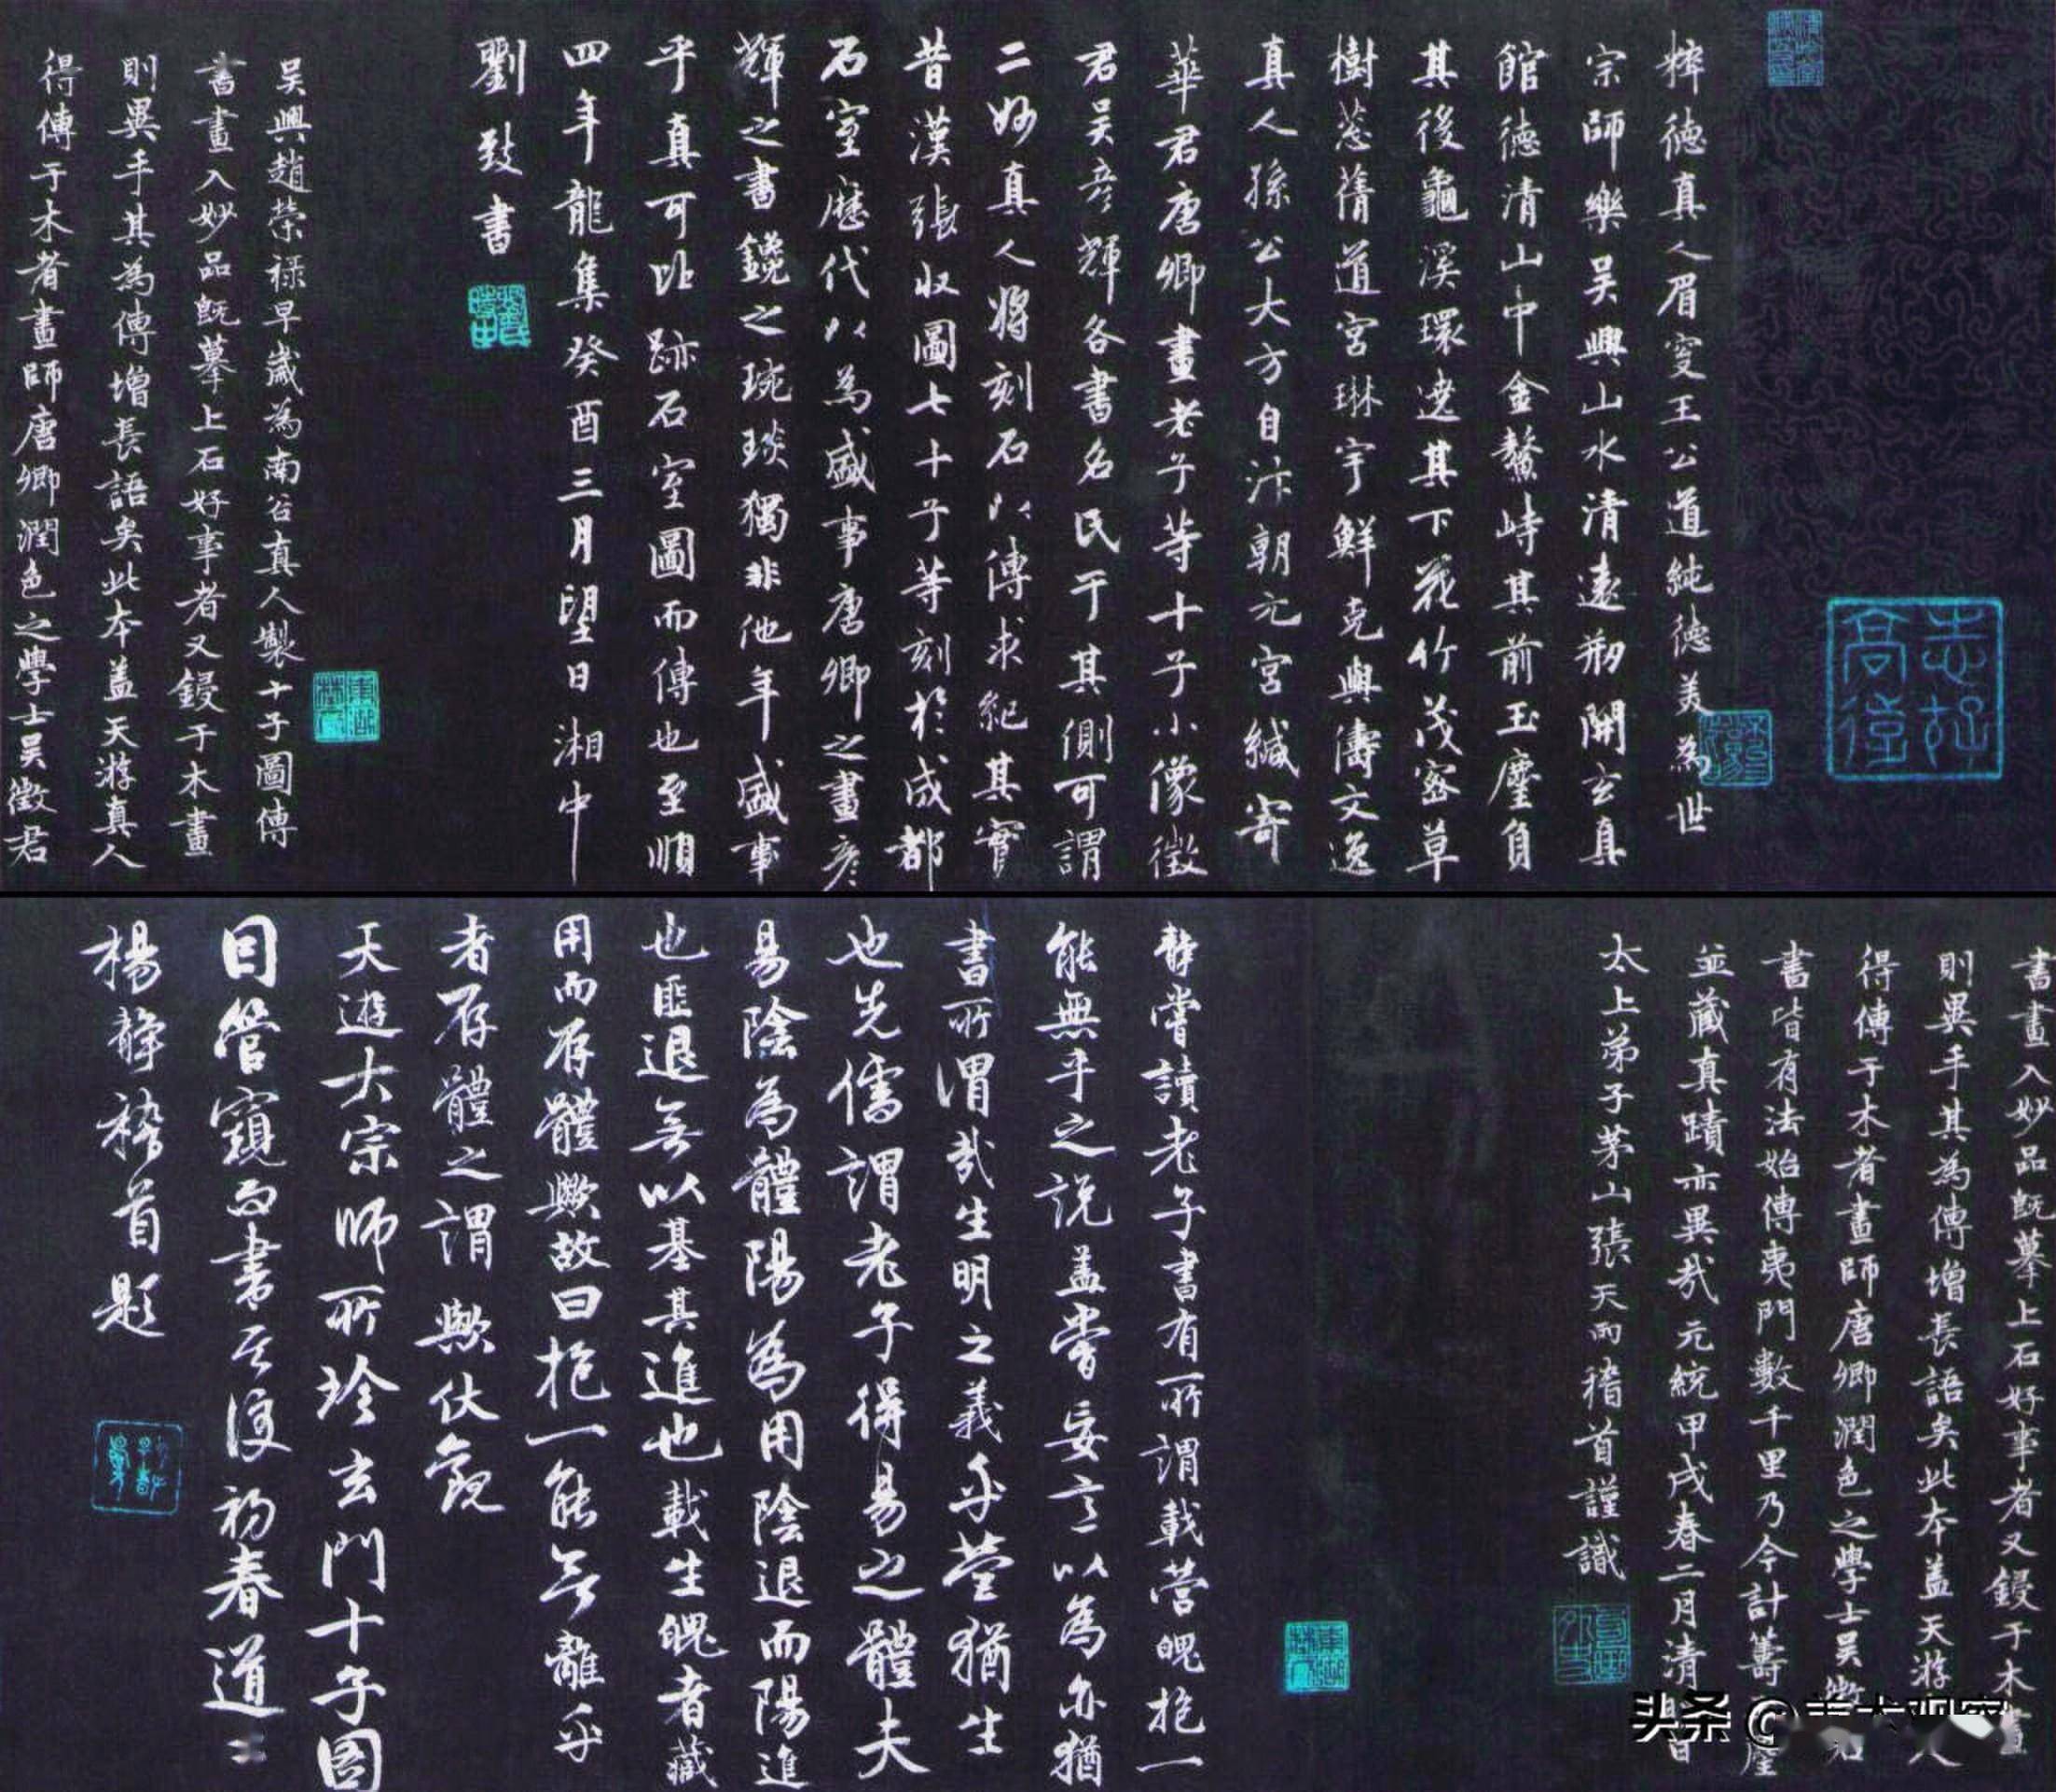 粹德真人眉叟王公道純德美為世
宗師樂吳興山水清遠剏開玄真
館德清山中金鰲峙其前玉塵負
其後龜溪環遶其下花竹茂密草
樹蔥蒨道宮琳宇鮮克與儔文逸
真人孫公大方自汴朝元宮緘寄
華君唐卿畫老子等十子小像徵
君吳彥輝各書名氏于其側可謂
二妙真人將刻石以傳求紀其實
昔漢張收圖七十子等刻於成都
石室歷代以為盛事唐卿之畫彥
輝之書鑱之琬琰獨非他年盛事
乎真可比跡石室圖而傳也至順
四年龍集癸酉三月望日湘中
劉致書
吳興趙榮祿早歲為南谷真人製十子圖傳
書畫入妙品既摹上石好事者又鋟于木畫
則異手其為傳增長語矣此本蓋天游真人
得傳于木者畫師唐卿潤色之學士吳徵君
志好高遠
書畫入妙品既摹上石好事者又鋟于木畫
則異手其為傳增長語矣此本蓋天游真人
得傳于木者畫師唐卿潤色之學士吳徵君
書皆有法始傳夷門數千里乃今計籌
並藏真蹟亦異哉元統甲戌春二月清明日
太上弟子茅山張天雨稽首謹識
靜嘗讀老子書有所謂載營魄抱一
能無乎之說蓋嘗妄意以為亦猶
書所謂哉生明之義乎營猶生
也先儒謂老子得易之體夫
易陰為體陽為用陰退而陽進
也匪退無以基其進也載生魄者藏
用而存體歟故曰抱一能無離乎
者存體之謂歟伏觀
天遊大宗師所珍玄門十子圖
目管窺而書于後初春道
楊靜稽首題
头条 @美术观察